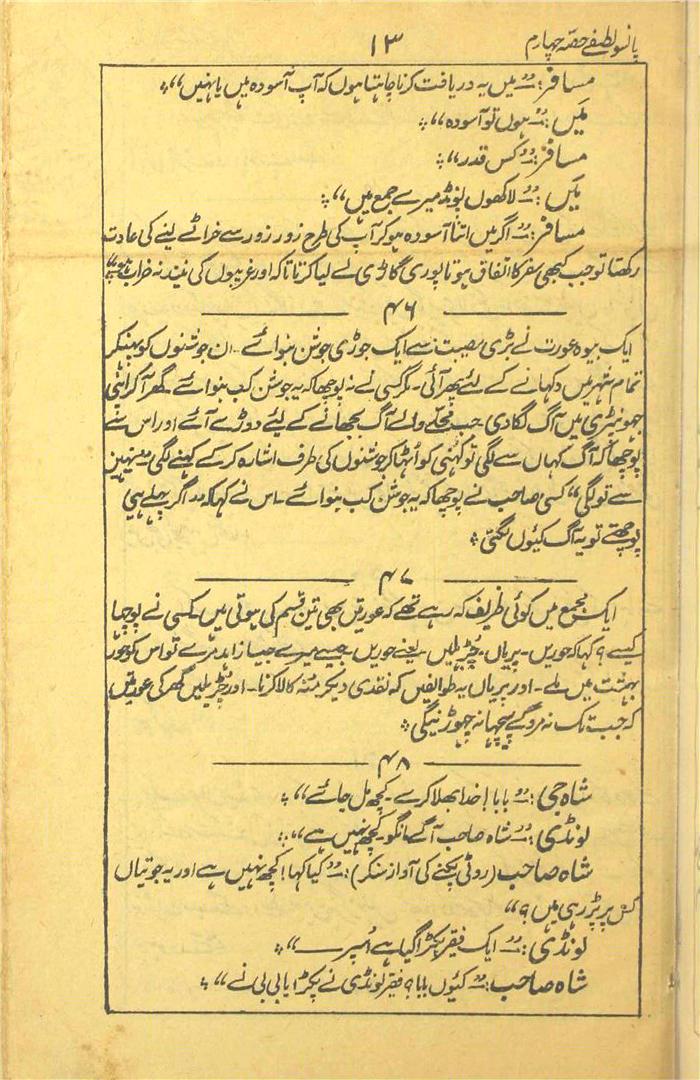 پانسو لطیفے حصہ چہارم
۱۳
مسافر:۔ "میں یہ دریافت کرنا چاہتا ہوں کہ آپ آسودہ ہیں یا نہیں"؛
مَیں:۔ "ہوں تو آسودہ"؛
مسافر:۔ "کس قدر"؛
مَیں:۔ "لاکھوں پونڈ میرے جمع ہیں"؛
مسافر:۔ "اگر میں اتنا آسودہ ہو کر آپ کی طرح زور زور سے خراٹے لینے کی عادت
رکھتا تو جب کبھی سفر کا اتفاق ہوتا پوری گاڑی لے لیا کرتا تاکہ اور غریبوں کی نیند نہ خراب ہو"
۴۶
ایک بیوہ عورت نے بڑی مصیبت سے ایک جوڑی جوشن بنوائے۔ ان جوشنوں کو پہنکر
تمام شہر میں دکھانے کے لئے پھر آئی۔ مگر کسی نے نہ پوچھا کہ یہ جوشن کب بنوائے۔ گھر آکر اپنی
جھونپڑی میں آگ لگا دی۔ جب محلے والے آگ بجھانے کے لیئے دوڑے آئے اور اس سے
پوچھا کہ آگ کہاں سے لگی تو کُہنی کو اُٹھا کر جوشنوں کی طرف اشارہ کرکے کہنے لگی "یہیں
سے تو لگی" کسی صاحب نے پوچھا کہ یہ جوشن کب بنوائے۔ اس نے کہا کہ "اگر پہلے ہی
پوچھتے تو یہ آگ کیوں لگتی؛
۴۷
ایک مجمع میں کوئی ظریف کہہ رہے تھے کہ عورتیں بھی تین قسم کی ہوتی ہیں۔ کسی نے پوچھا
کیسے؟ کہا کہ حوریں۔ پریاں۔ چُڑیلیں۔ یعنے حوریں۔ جیسے میرے جیسا زاہد مرے تو اس کو حور
بہشت میں ملے۔ اور پریاں یہ طوائفیں کہ نقدی دیکر منہ کالا کرنا۔ اور چڑیلیں گھر کی عورتیں
کہ جب تک نہ مروگے پیچھا نہ چھوڑینگی؛
۴۸
شاہ جی:۔ "بابا! خدا بھلا کرے۔ کچھ مل جائے"؛
لونڈی:۔ "شاہ صاحب آگے مانگو۔ کچھ نہیں ہے"؛
شاہ صاحب (روٹی پکنے کی آواز سنکر):۔ "کیا کہا! کچھ نہیں ہے اور یہ جوتیاں
کس پر پڑ رہی ہیں؟"
لونڈی:۔ "ایک فقیر پکڑا گیا ہے اُسپر ــــ"؛
شاہ صاحب:۔ "کیوں بابا؟ فقیر لونڈی نے پکڑا یا بی بی نے"؛